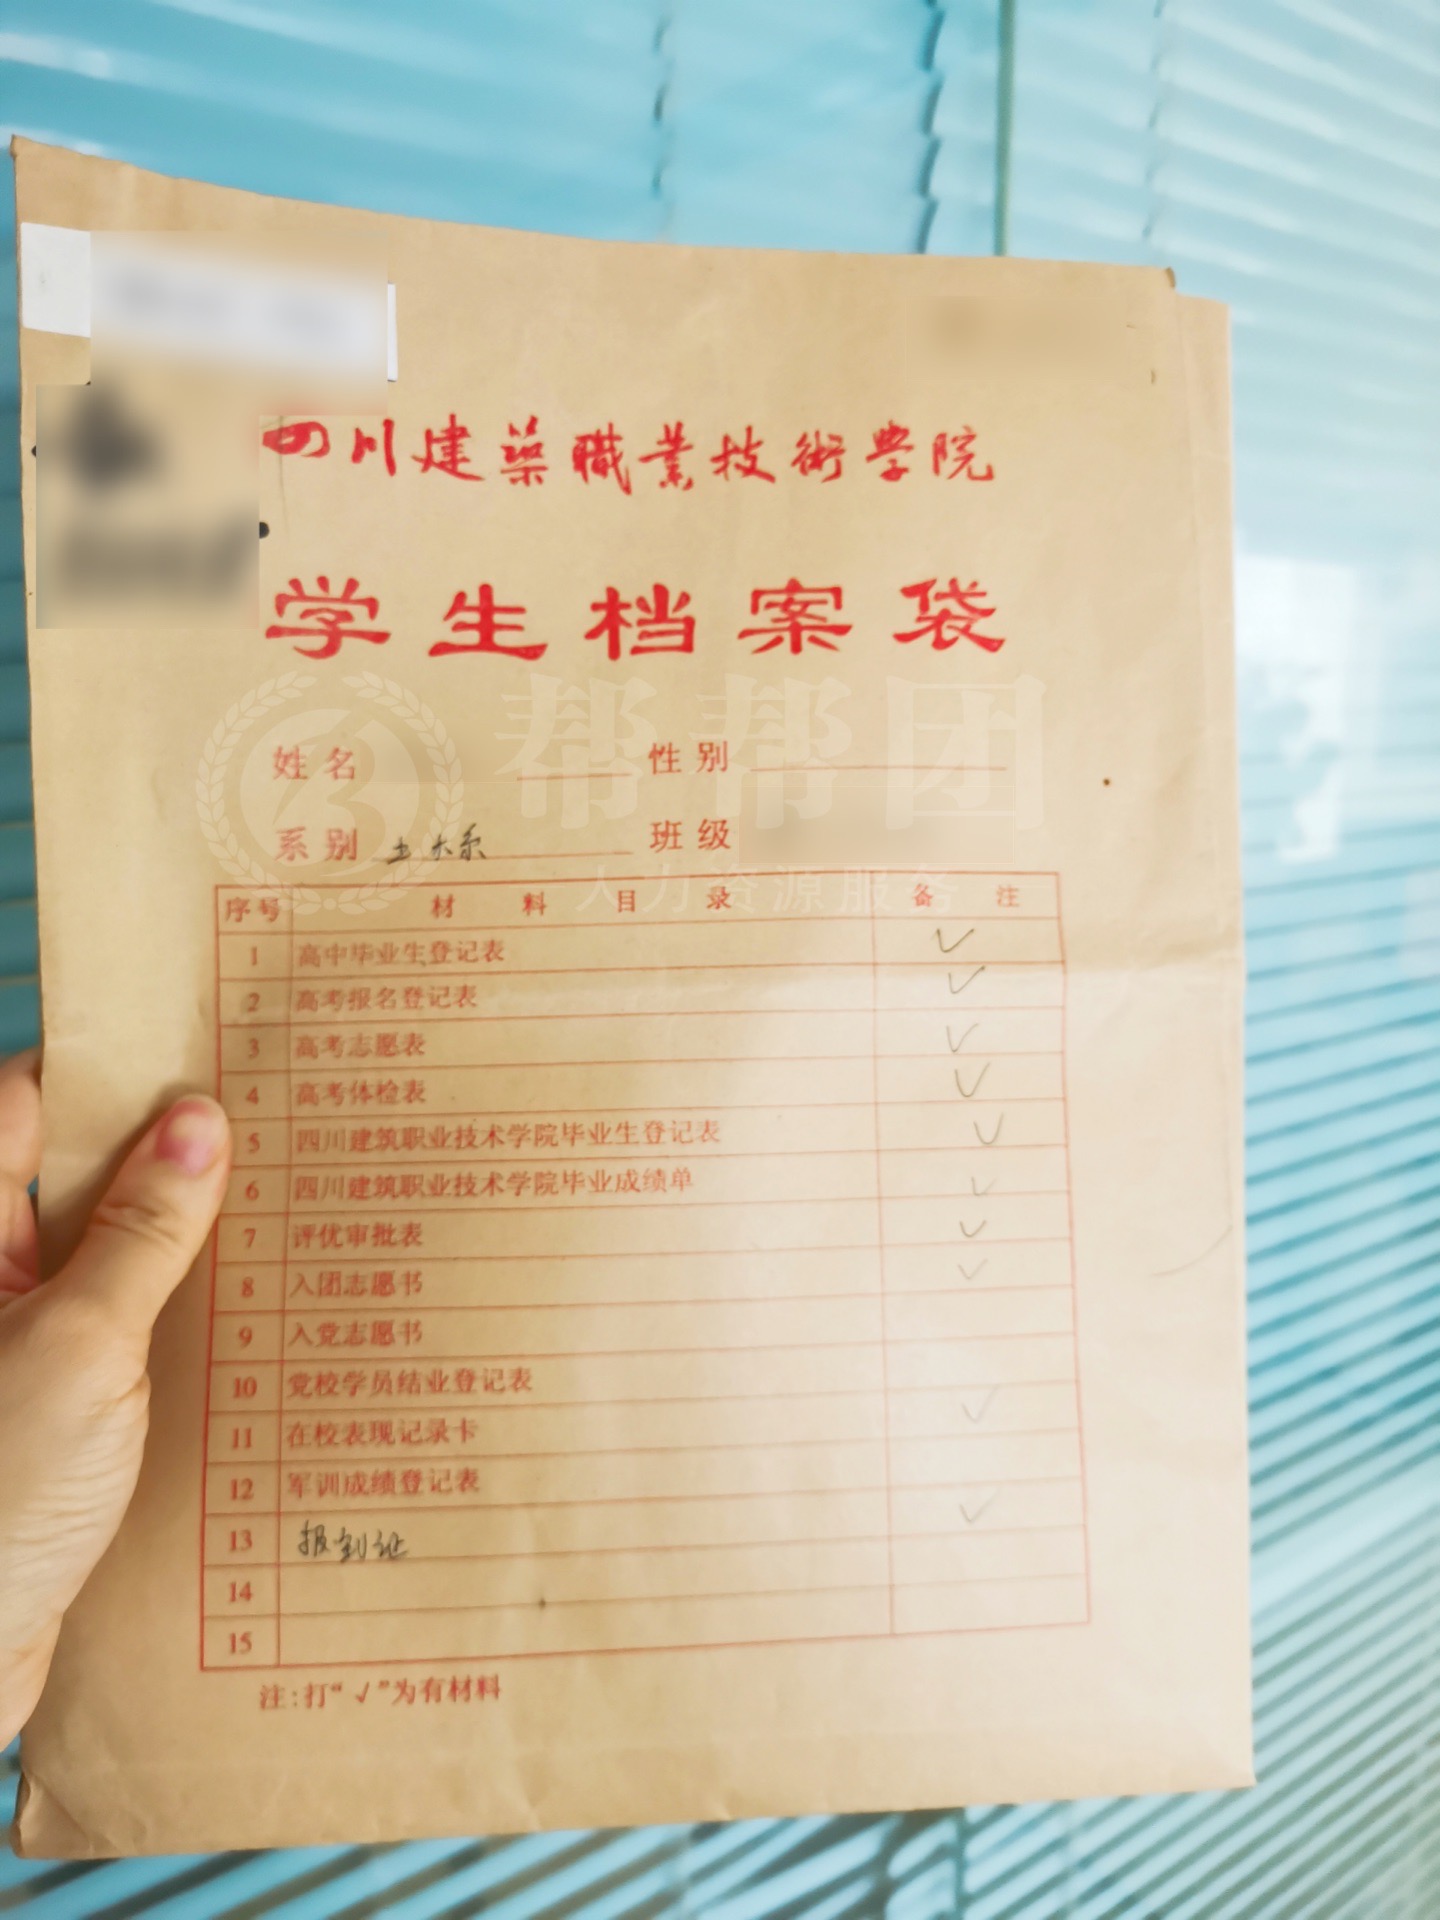 四川建築職業技術学院
学生档案袋
姓名 性别
系别 土木系 班级
帮帮团
人力资源服务
序号 材料目录 备注
1 高中毕业生登记表 ✓
2 高考报名登记表 ✓
3 高考志愿表 ✓
4 高考体检表 ✓
5 四川建筑职业技术学院毕业生登记表 ✓
6 四川建筑职业技术学院毕业成绩单 ✓
7 评优审批表 ✓
8 入团志愿书 ✓
9 入党志愿书
10 党校学员结业登记表
11 在校表现记录卡 ✓
12 军训成绩登记表
13 报到证 ✓
14
15
注:打“√”为有材料